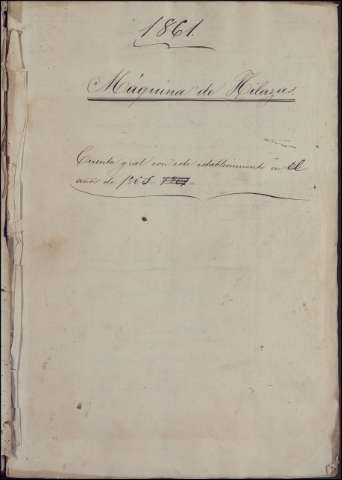 1861.
Máquina de Hilazas.
Cuenta gral con este establecimiento en el
año de